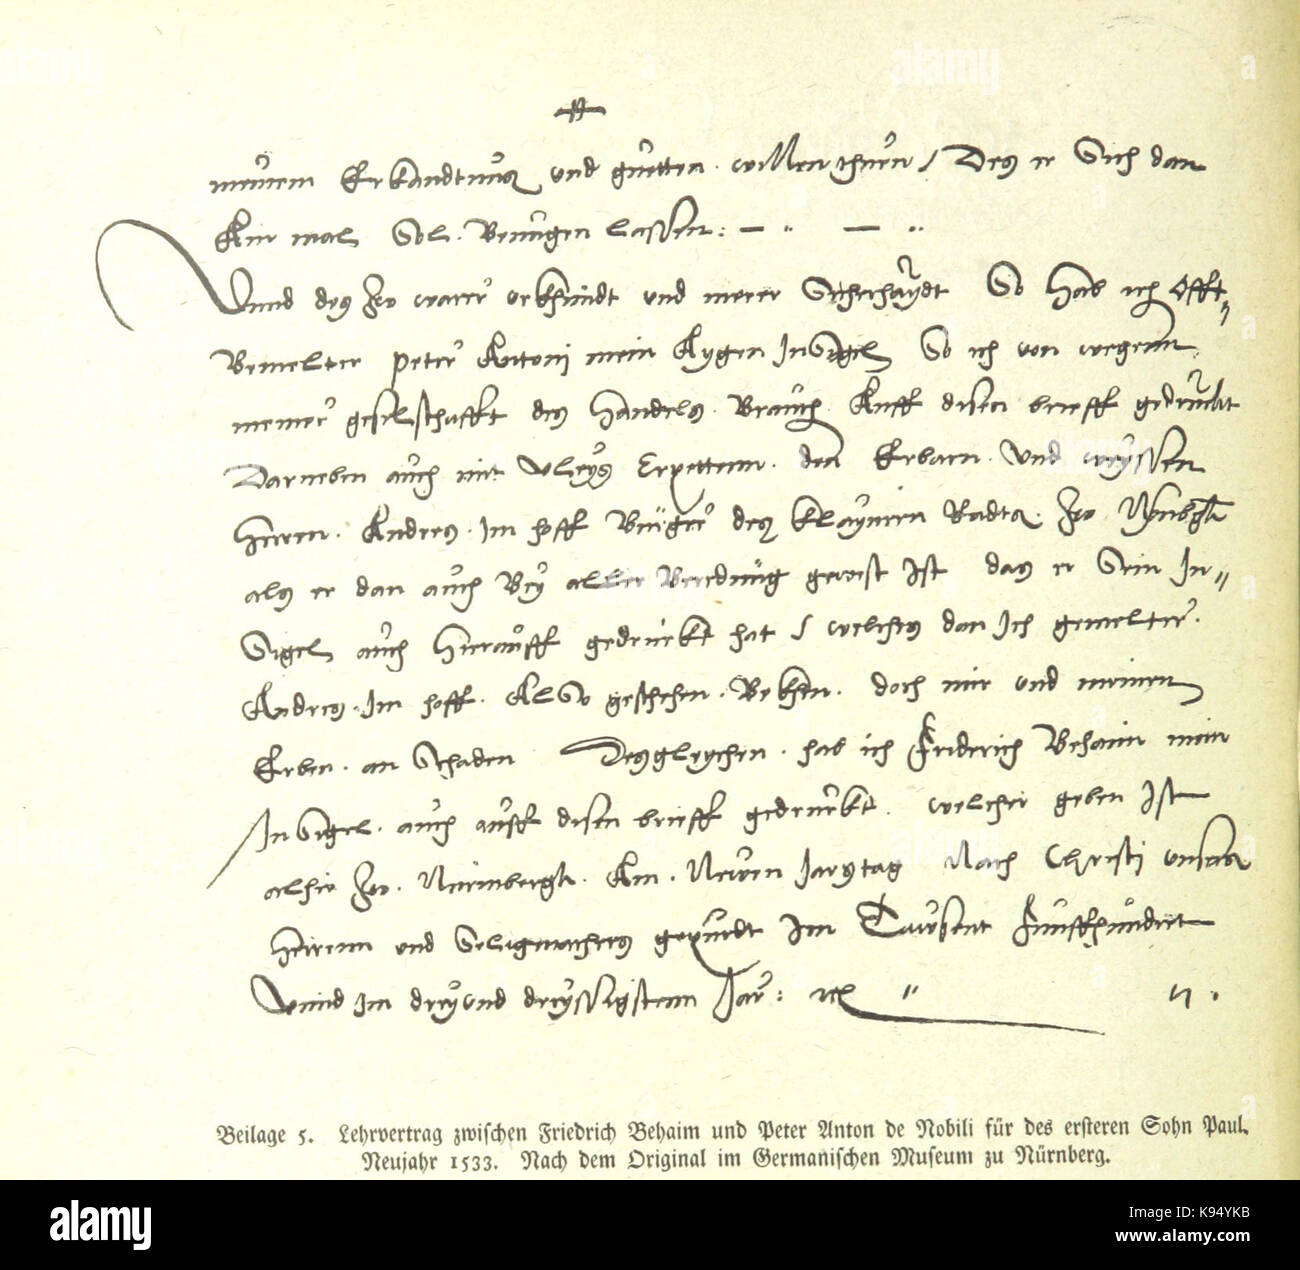 meinem Erkandtnus und guetten. willen thuen / Des er Sich dan
Ain mal Sol. Benuegen lassen: — " — "
Unnd des Zw warer urkhundt und merer Sicherhaydt So Hab ich Offt
Bemelter Peter Antoni mein Aygen InSigel So ich von wegenn
meiner geselschafft des Handels. Brauch. Auff disen brieff gedruckt
Darneben auch mit vleys Erpettenn. den Erbarn. Und weyssen
Herren. Andres. Im hoff Burger des klaynern Radts. Zw
als er dan auch Bey aller Beredung gewest Ist das er Sein In=
Sigel auch Hierauff gedruckt hat / welches dan Ich gemelter.
Andres. Im hoff. AlSo geschehen. Bekhen. doch mir und meinen
Erben. an Schaden Desgleychen. hab ich Friderich Behaim mein
InSigel. auch auff disen brieff gedruckt. welcher geben Ist
alhie Zw. Nurmbergk. Am. Newen Jarstag Nach Christi unsers
Herrenn und Seligmachers gepurdt Im Tawsent Funffhundert
Unnd Im dreyunddreyssigstenn Jar:
Beilage 5. Lehrvertrag zwischen Friedrich Behaim und Peter Anton de Nobili für des ersteren Sohn Paul.
Neujahr 1533. Nach dem Original im Germanischen Museum zu Nürnberg.
alamy
Image ID: K94YKB
www.alamy.com